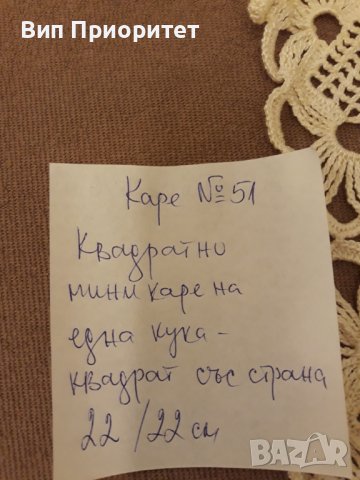 Вип Приоритет
Каре № 51
Квадратно
мини каре на
една кука -
квадрат със страна
22 /22 см
BAZAR